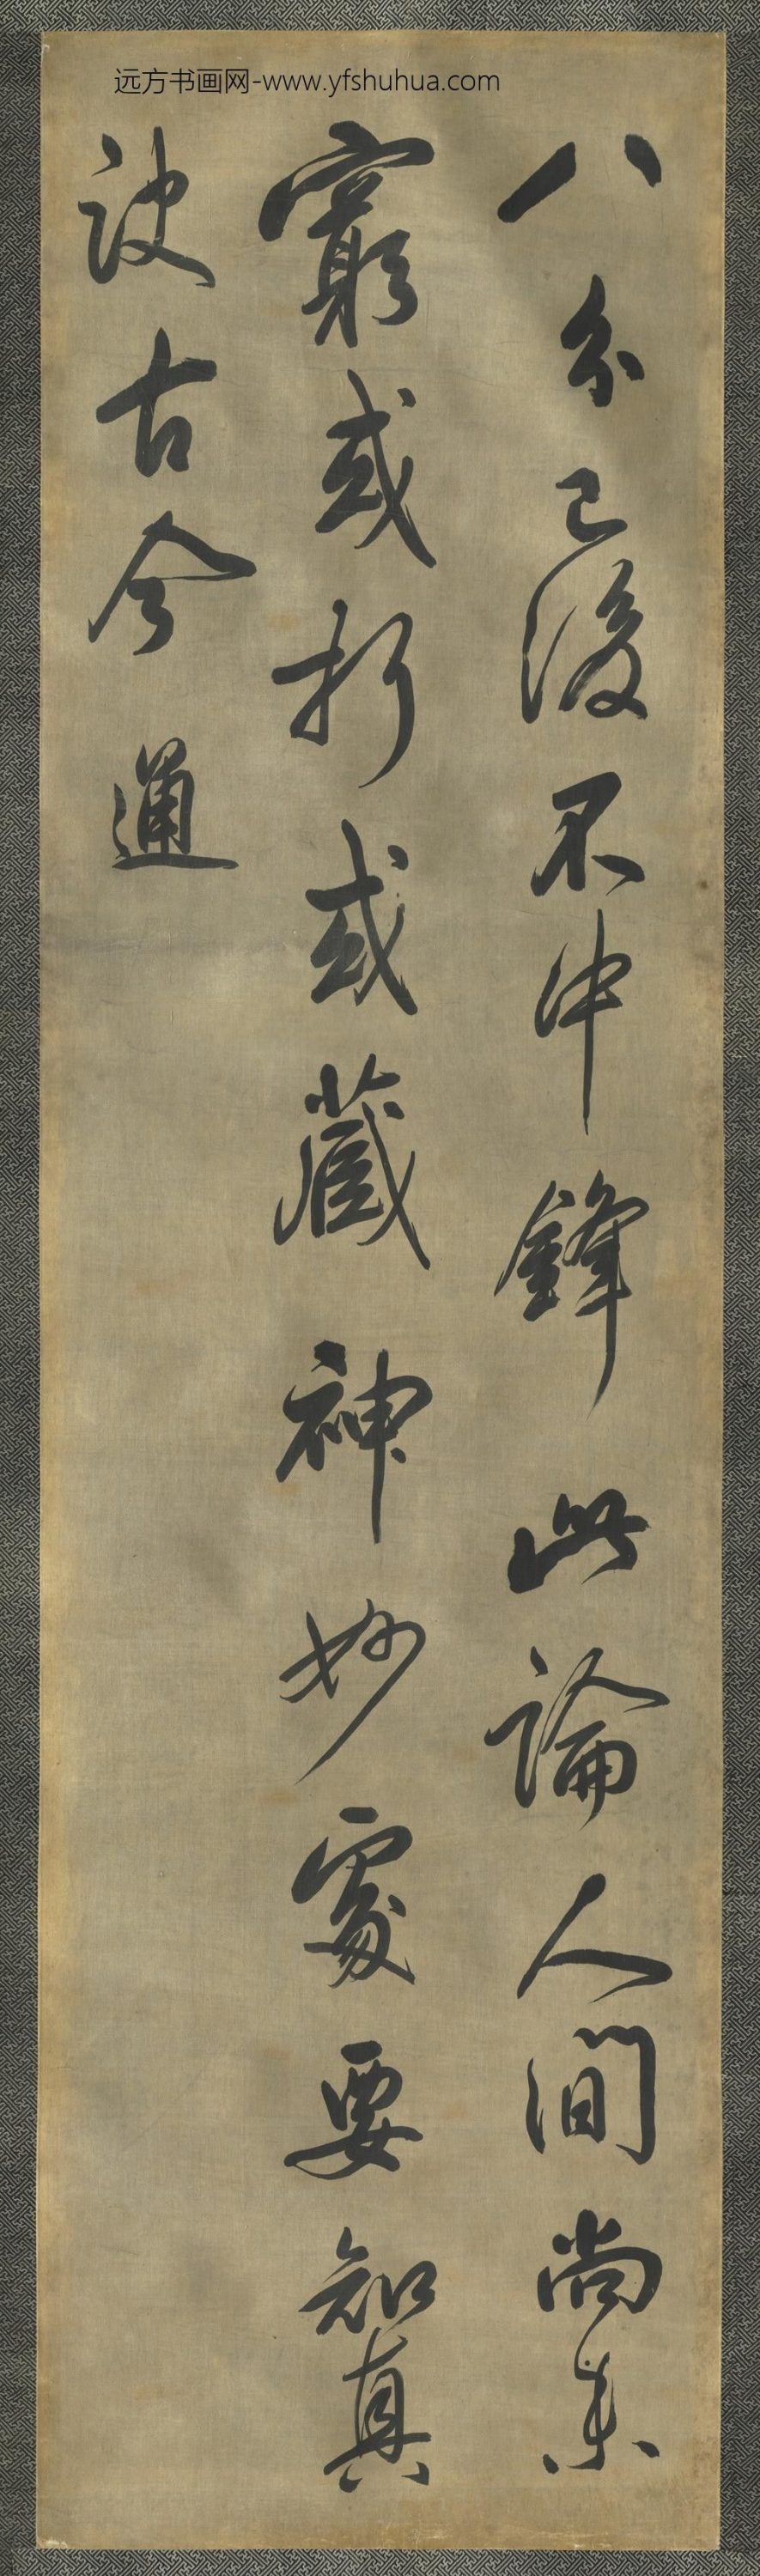 远方书画网-www.yfshuhua.com
八分已後不中鋒此論人間尚未
窮或折或藏神妙處要知真
訣古今通